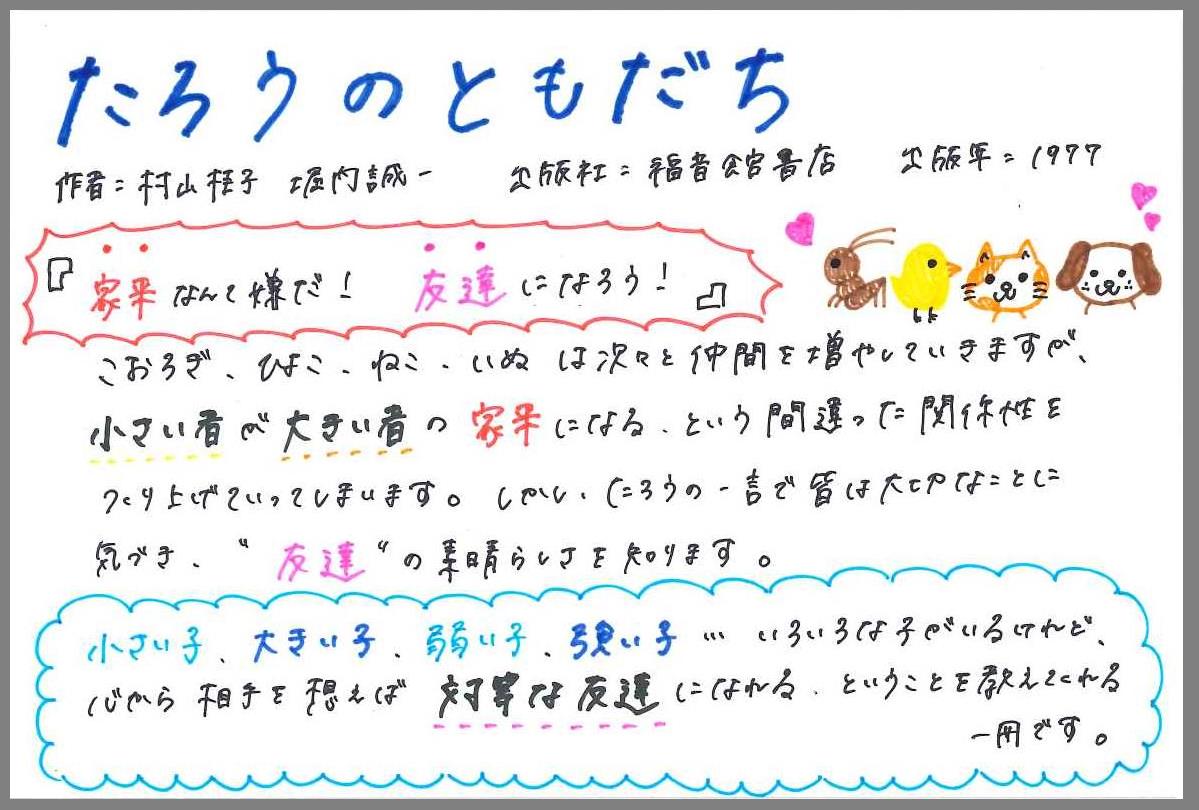 たろうのともだち
作者=村山桂子 堀内誠一 出版社=福音館書店 出版年=1977
『家来なんて嫌だ! 友達になろう!』
こおろぎ、ひよこ、ねこ、いぬは次々と仲間を増やしていきますが、
小さい者が大きい者の家来になる、という間違った関係性を
つくり上げていってしまいます。しかし、たろうの一言で皆は大切なことに
気づき、“友達“の素晴らしさを知ります。
小さい子、大きい子、弱い子、強い子…いろいろな子がいるけれど、
心から相手を想えば対等な友達になれる、ということを教えてくれる
一冊です。